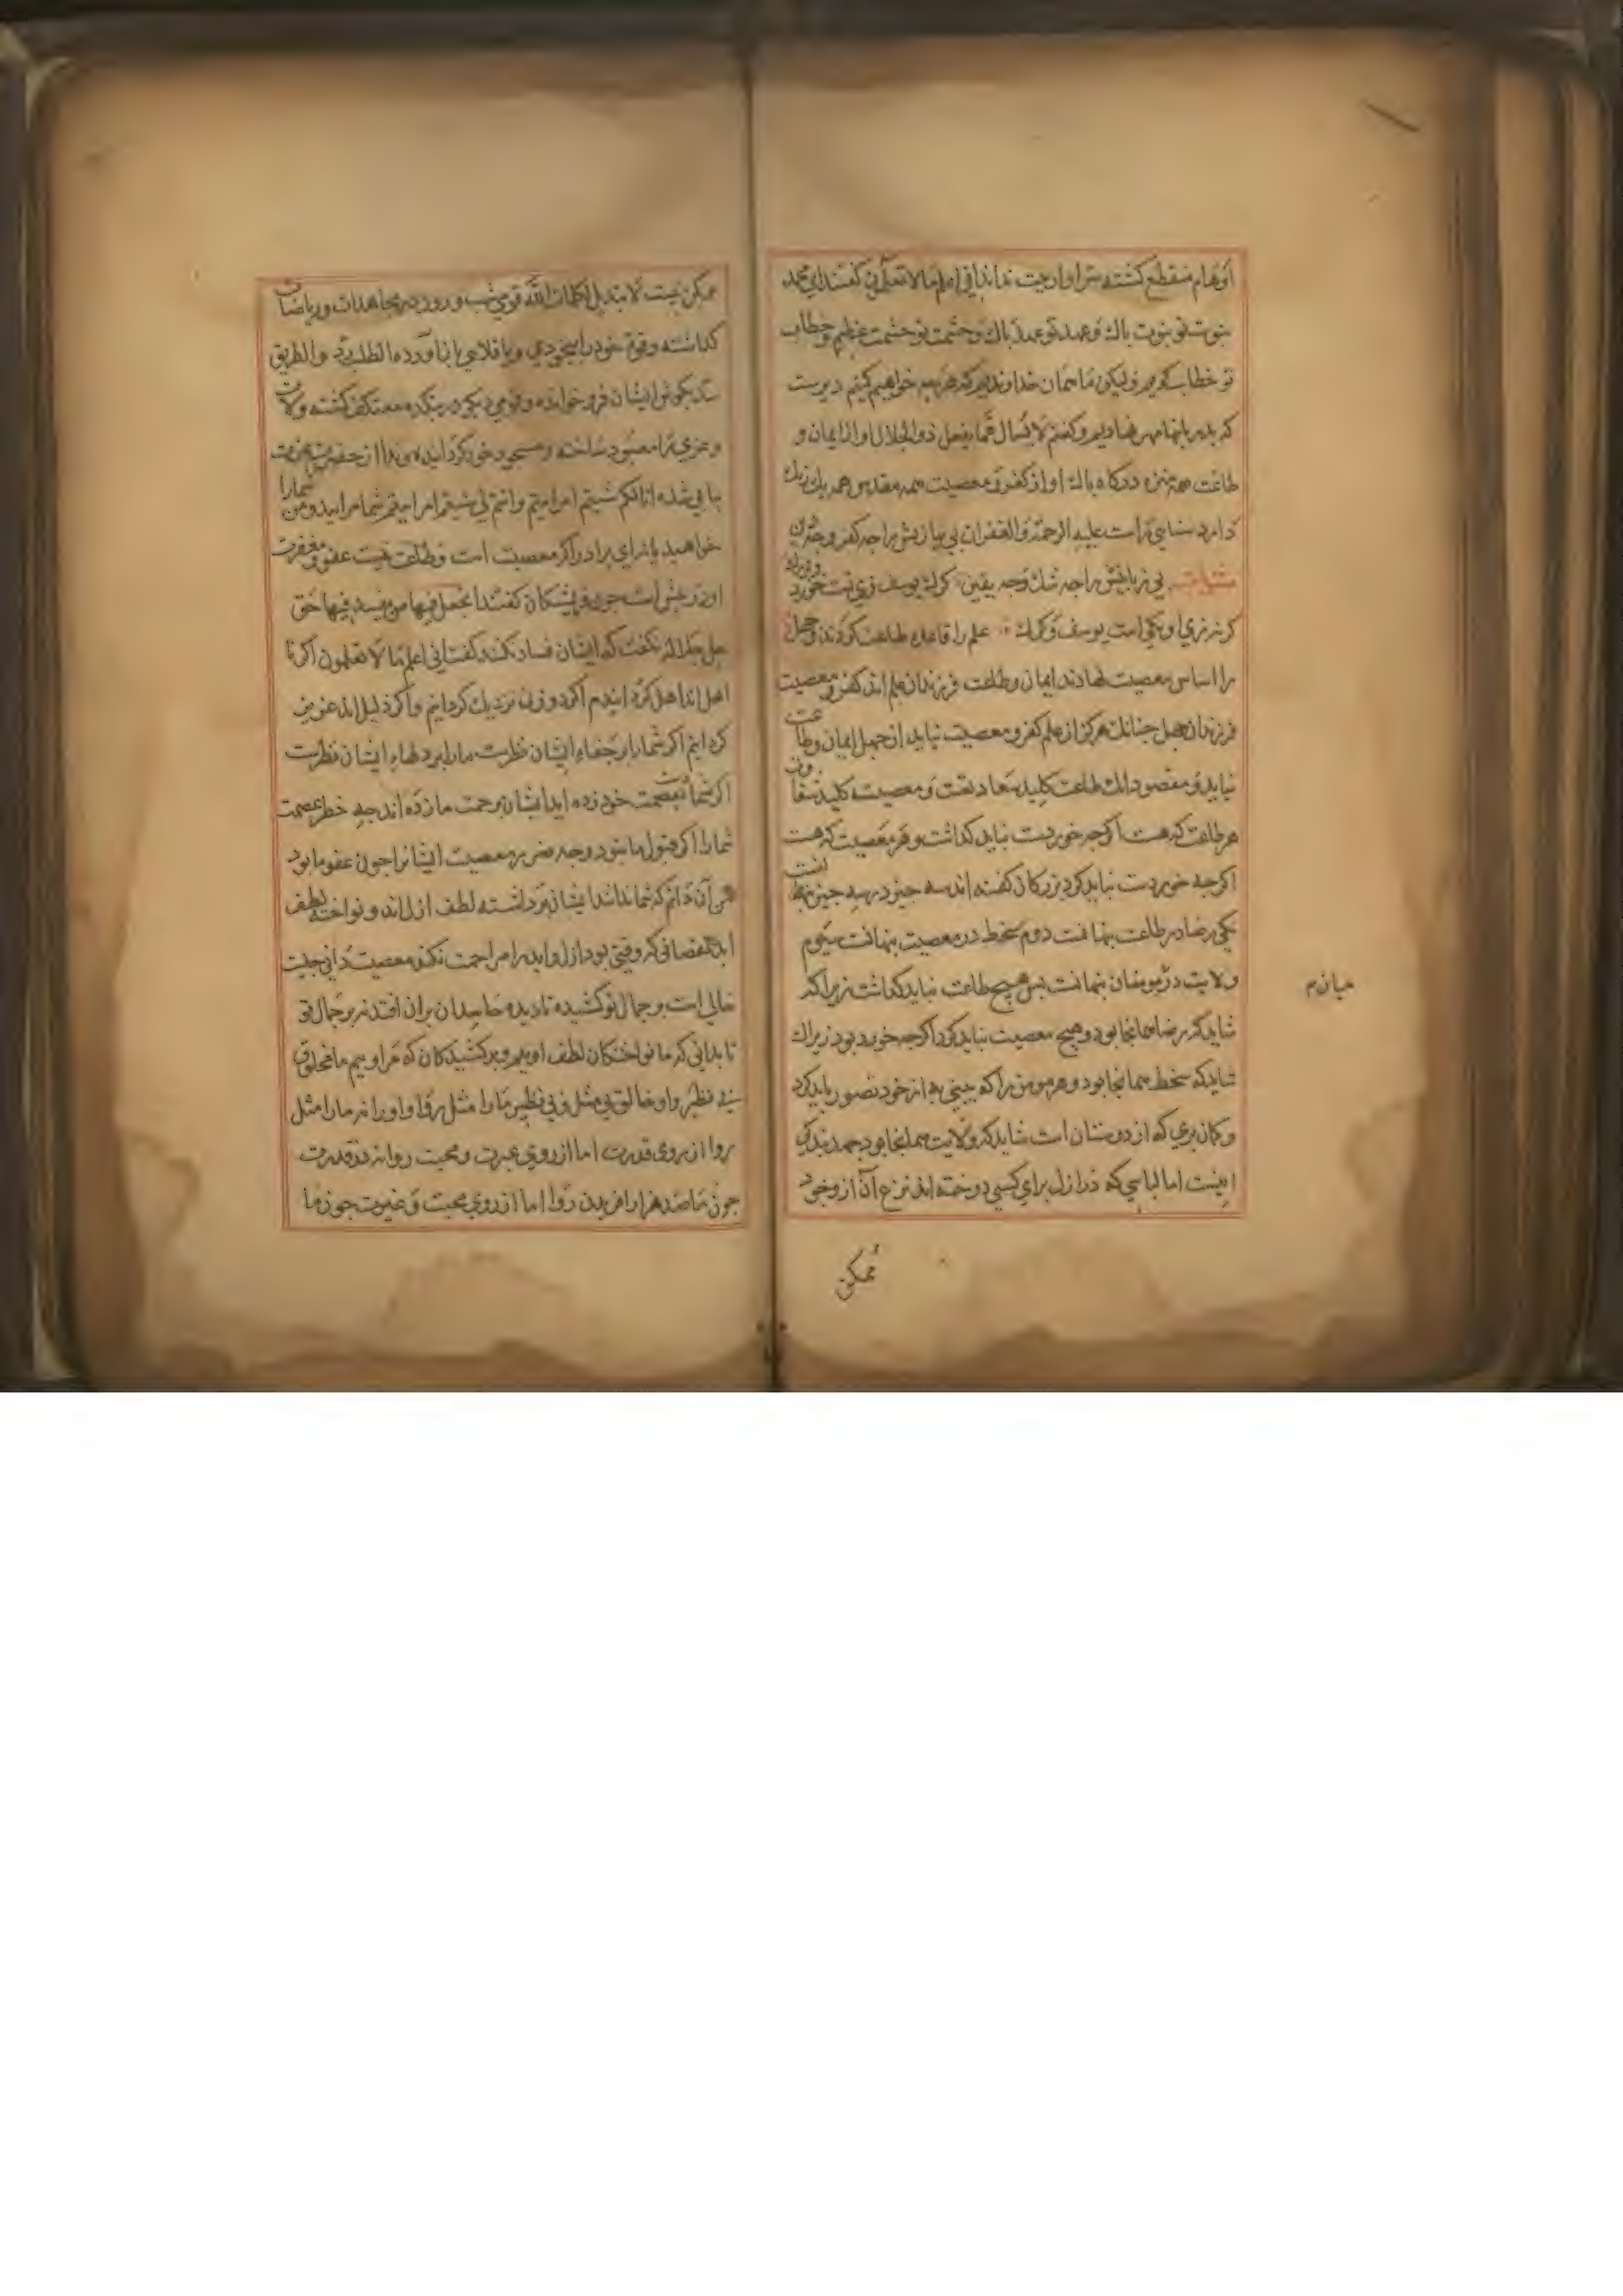 اوهام منقطع کشته سرا او ادبیت ندا اندا انی اعلم مالا تعلمون کفتند ای محمد
نبوت تو نبوت باك و عهد تو عهد باك و حشمت تو حشمت عظیم و خطاب
تو خطاب کریم ولیکن ما همان خداوندیم که هرچه خواهیم کنیم دیرست
که بدین بابها مهر نهادیم و کفتم لا یسال عما یفعل ذو الجلال او از ایمان و
طاعت همه منزه درکاه باك او از کفر و معصیت همه مقدس همه یك رنك
دارد سنایی راست علیه الرحمة و الغفران بی نیازیش را چه کفر و چه دین
بی زبانیش را چه شك و چه یقین کرك و یوسف تست خورد و بزرك
کرنه زی او یکی است یوسف و کرك علم را قاعده طاعت کردند و جهل
را اساس معصیت نهادند ایمان و طاعت فرزندان علم اند کفر و معصیت
فرزندان جهل جنانك هرکز از علم کفر و معصیت نیاید از جهل ایمان و طاعت
نیاید و مقصود انك طاعت کلید سعادتست و معصیت کلید شقاوت
هر طاعت که هست اکرجه خوردست نباید کذاشت و هر معصیت که هست
اکرجه خوردست نباید کرد بزرکان کفته اند سه جیز در سه جیز
یکی رضا در طاعت بنهانست دوم سخط در معصیت بنهانست سیوم
ولایت در مومنان بنهانست بس هیچ طاعت نباید کذاشت زیرا که
میان م
شاید که رضا همانجا بود و هیچ معصیت نباید کرد اکرجه خورد بود زیراك
شاید که سخط همانجا بود و هر مومن را که بینی به از خود تصور باید کرد
و کمان بری که از دوستان است شاید که ولایت همانجا بود جهد بندکی
اینست اما لباسی که در ازل برای کسی دوخته اند نزع آن از وجود
ممکن
ممکن نیست لا تبدیل لکلمات الله قومی شب و روز در مجاهدات و ریاضات
کذاشته و قوة خود را و یا فلان یا با آورده الطلب رد و الطریق
سد بکوش ایشان فرو خوانده و قومی دیکر در بتکده معتکف کشته و لات
و عزی را معبود ساخته و مسجود خود کردانیده و ندا از حضرت عزت
بیابی شده انا لکم شیتم ام ابیتم و انتم لی شیتم ام ابیتم شما مرا اید و من شمارا
خواهید یا نه ای برادر اکر معصیت است و طاعت نیست عفو و مغفرت
او در عوض است جون فریشتکان کفتند اتجعل فیها من یفسد فیها حق
جل جلاله نکفت که ایشان فساد نکنند کفت انی اعلم مالا تعلمون اکر نا
اهل اند اهل کردانیدم اکر دورند نزدیك کردانم و اکر ذلیل اند عزیز
کردانم اکر شما را بر جفاء ایشان نظرست مارا بر دلهاء ایشان نظرست
اکر شما بعصمت خود زده اید ایشان برحمت ما زده اند جه خطر عصمت
شما را اکر قبول ما نبود و جه ضرر معصیت ایشانرا جون عفو ما بود
من آن دانم که شما ندانید ایشان برداشته لطف ازل اند و نواخته لطف
ابد نقصانی که وقتی بود ازل و ابد را مزاحمت نکند معصیت دانی جیست
خالی است بر جمال تو کشیده تا دیده حاسدان بران افتد نه بر جمال تو
تا بدانی که ما نواختکان لطف اوییم و برکشیدکان کرم اوییم ما مخلوق
بی نظیر و او خالق بی مثل و بی نظیر ما را مثل روا و او را نه ما را مثل
روا از روی قدرت اما از روی غیرت و محبت روا نه در قدرت
جون ما صد هزار افریدن روا اما از روی محبت و غیرت جون ما